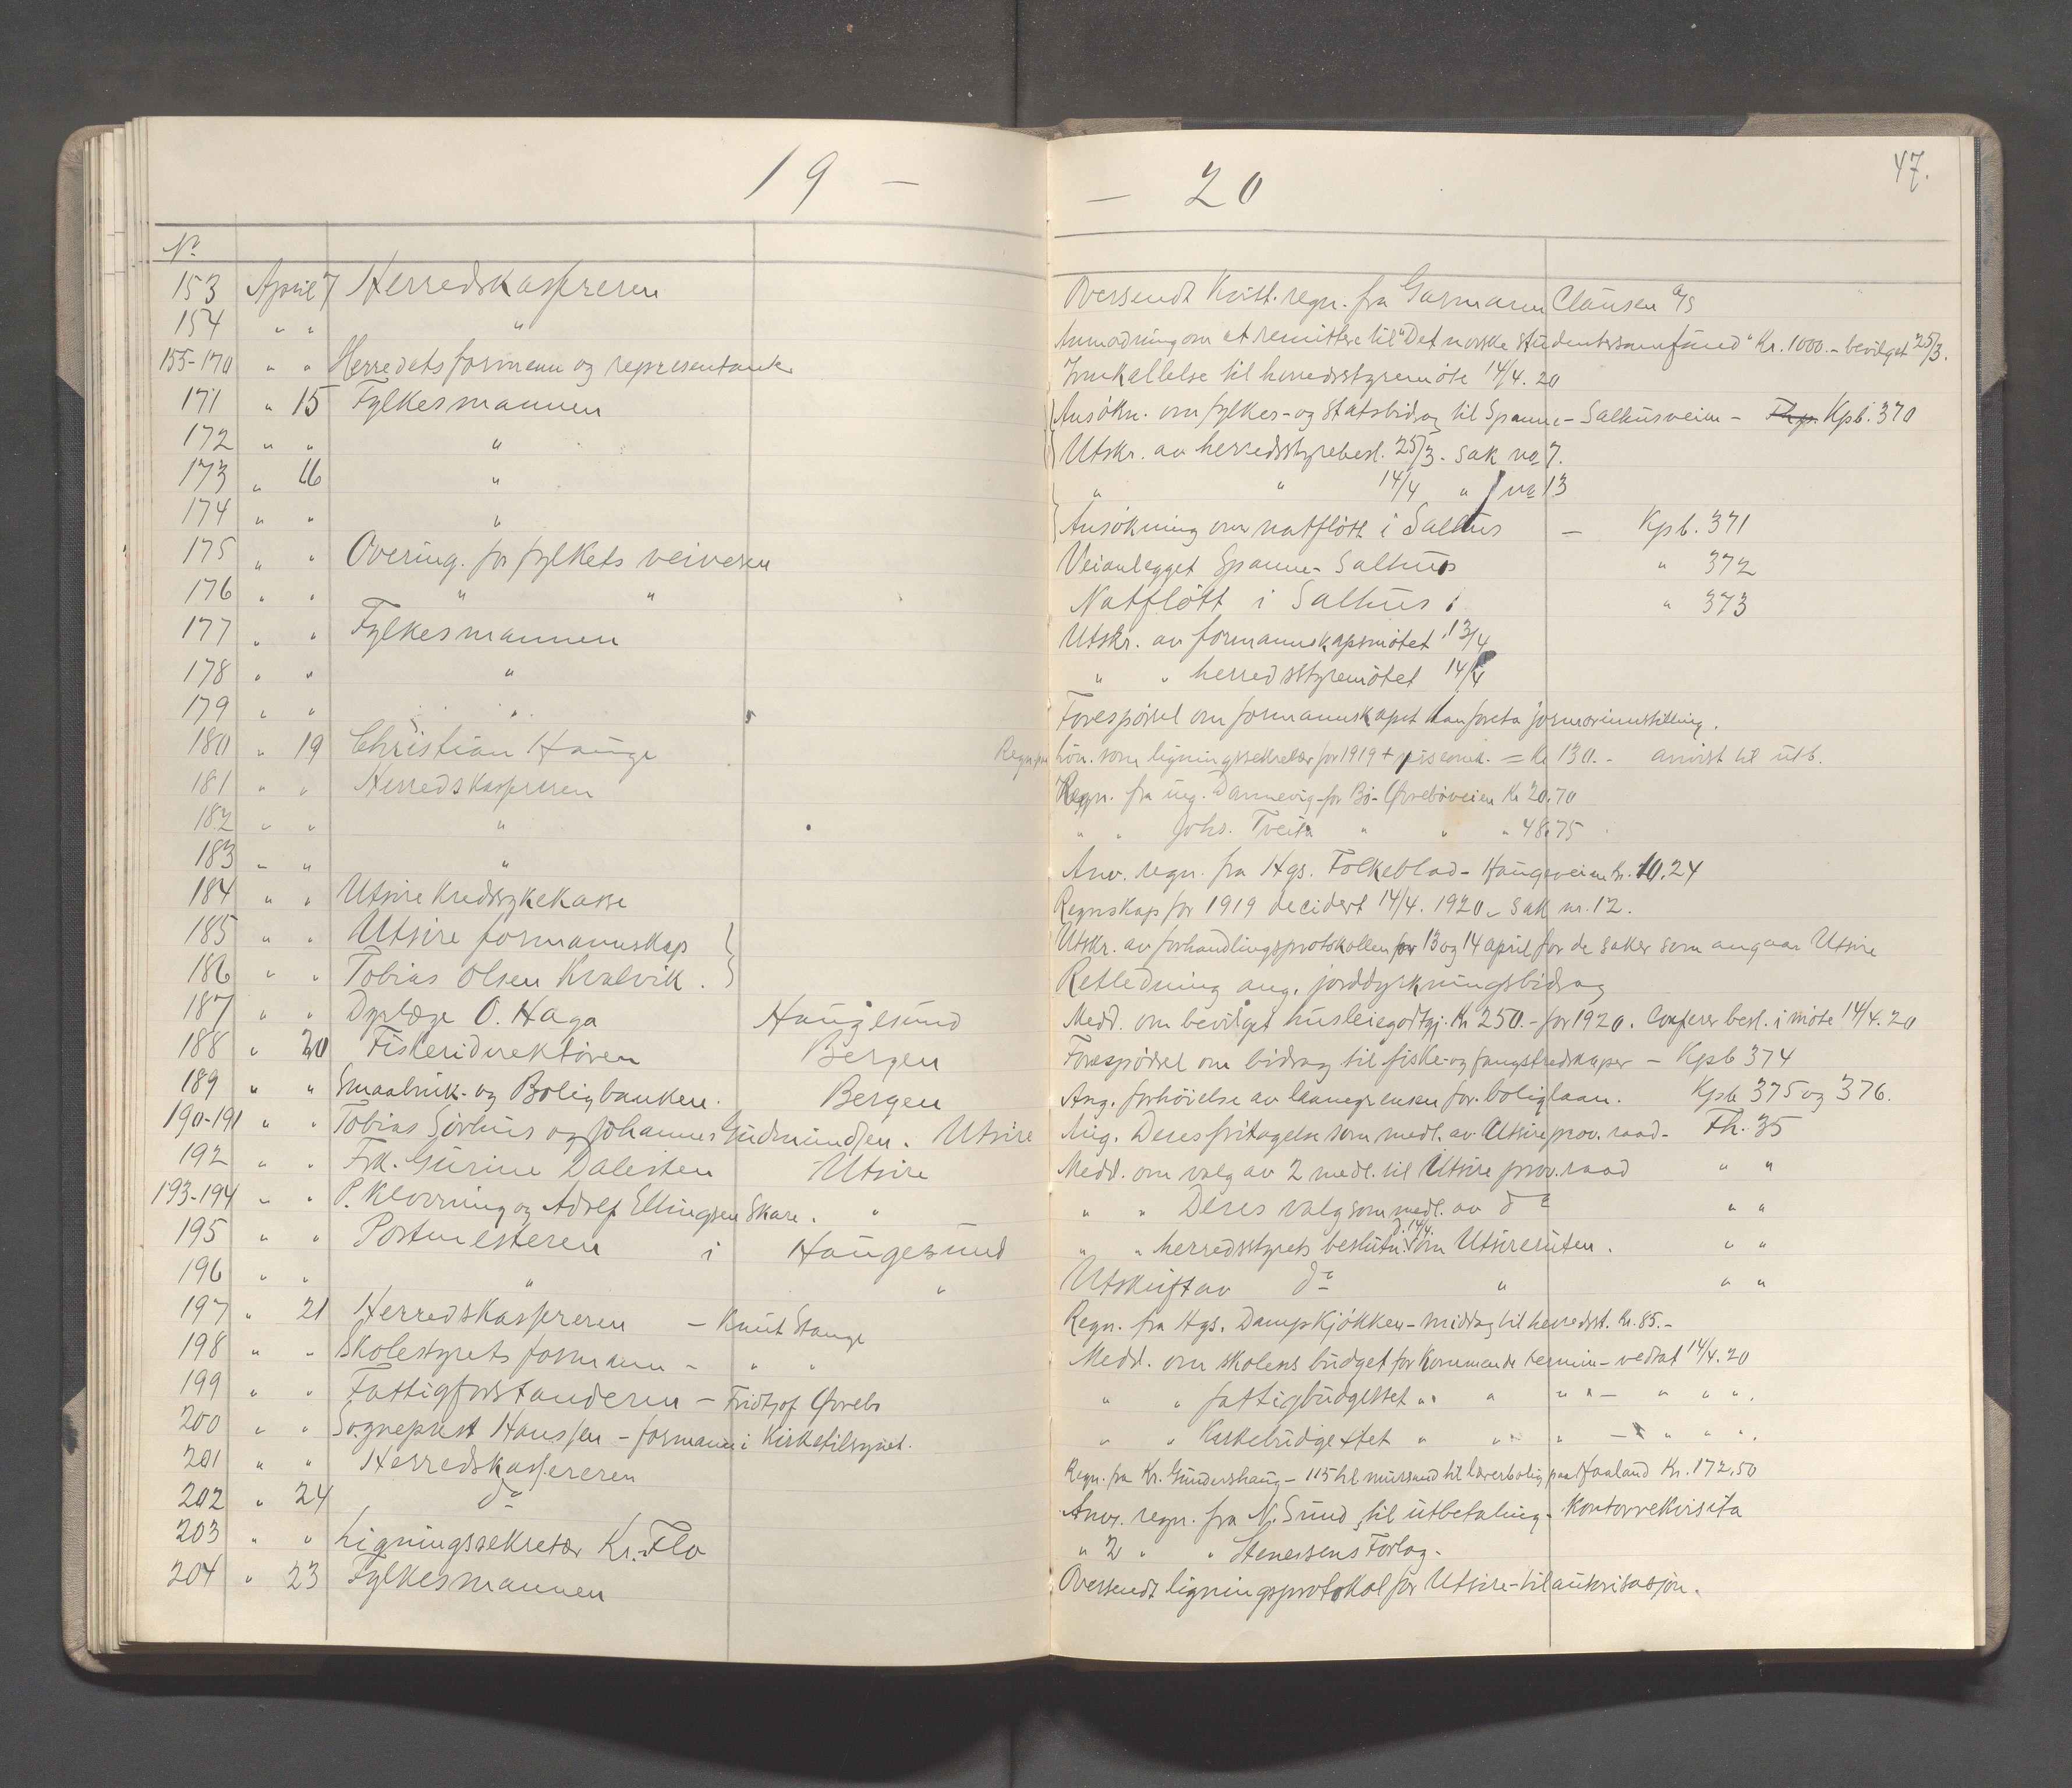 19 — — 20
47.
No
153 April 7 Herredskassereren Oversendt kvitt. regn. fra Garmann Clausen A/S
154 " " " Anmodning om at remittere til "Det norske studentersamfund" Kr. 1000.- bevilget 25/3.
155-170 " " Herredets formenn og representanter Innkallelse til herredsstyremöte 14/4. 20
171 " 15 Fylkesmannen Ansökn. om fylkes- og statsbidrag til Spanne-Salhusveien - Kpb. 370
172 " " " Utskr. av herredsstyrebesl. 25/3. sak no 7.
173 " 16 " " " 14/4 " no 13
174 " " " Ansökning om natflött i Salhus — Kpb. 371
175 " " Overing. for fylkets veivesen Veianlegget Spanne-Salhus " 372
176 " " " " Natflött i Salhus " 373
177 " " Fylkesmannen Utskr. av formannskapsmötet 13/4
178 " " " " " herredsstyremötet 14/4
179 " " " Forespörsel om formannskapet kan foreta jormorinnstilling.
180 " 19 Christian Hauge Regn. paa hon. som ligningssekretær for 1919 + = Kr 130.- anvist til utb.
181 " " Herredskassereren Regn. fra ing. Dannevig for Bö-Øvreböveien Kr 20,70
182 " " " " " Johs. Tveita " " " 48,75
183 " " " Anv. regn. fra Hgs. Folkeblad - Haugeveien Kr. 10.24
184 " " Utsire kredssykekasse Regnskap for 1919 decidert 14/4. 1920 - sak nr. 12.
185 " " Utsire formannskap Utskr. av forhandlingsprotokollen for 13 og 14 april for de saker som angaar Utsire
186 " " Tobias Olsen Kvalvik. Retledning ang. jorddyrkningsbidrag
187 " " Dyrlæge O. Haga Haugesund Medd. om bevilget husleiegodtgj. Kr 250.- for 1920. Conferer besl. i möte 14/4. 20
188 " 20 Fiskeridirektören Bergen Forespörsel om bidrag til fiske- og fangstredskaper - Kpb 374
189 " " Smaabruk- og Boligbanken. Bergen Ang. forhöielse av laanegrensen for boliglaan. Kpb 375 og 376.
190-191 " " Tobias Sörhus og Johannes Gudmundsen. Utsire Ang. Deres fritagelse som medl. av Utsire prov. raad - Fh. 35
192 " " Frk. Gurine Dalesten Utsire Medd. om valg av 2 medl. til Utsire prov. raad " "
193-194 " " P. Klovning og Adolf Ellingsen Skare. " " " Deres valg som medl. av do " "
195 " " Postmesteren i Haugesund " " herredsstyrets beslutn. d. 14/4. om Utsireruten. " "
196 " " " " Utskrift av do " " "
197 " 21 Herredskassereren - Knut Stange Regn. fra Hgs. Dampkjökken - middag til herredsst. Kr. 85.-
198 " " Skolestyrets formann - " " Medd. om skolens budget for kommende termin - vedtat 14/4. 20
199 " " Fattigforstanderen - Fridtjof Øvrebö " " fattigbudgettet " " " " - " " ".
200 " " Sogneprest Hanssen - formann i kirketilsynet. " " Kirkebudgettet " " " - " " ".
201 " " Herredskassereren Regn. fra Kr. Gundershaug - 115 hl mursand til lærerbolig paa Haaland Kr. 172,50
202 " 24 do Anv. regn. fra N. Sund til utbetaling - kontorrekvisita
203 " " Ligningssekretær Kr. Flo " 2 " " Stenersens Forlag -
204 " 23 Fylkesmannen Oversendt ligningsprotokol for Utsire - til autorisasjon.